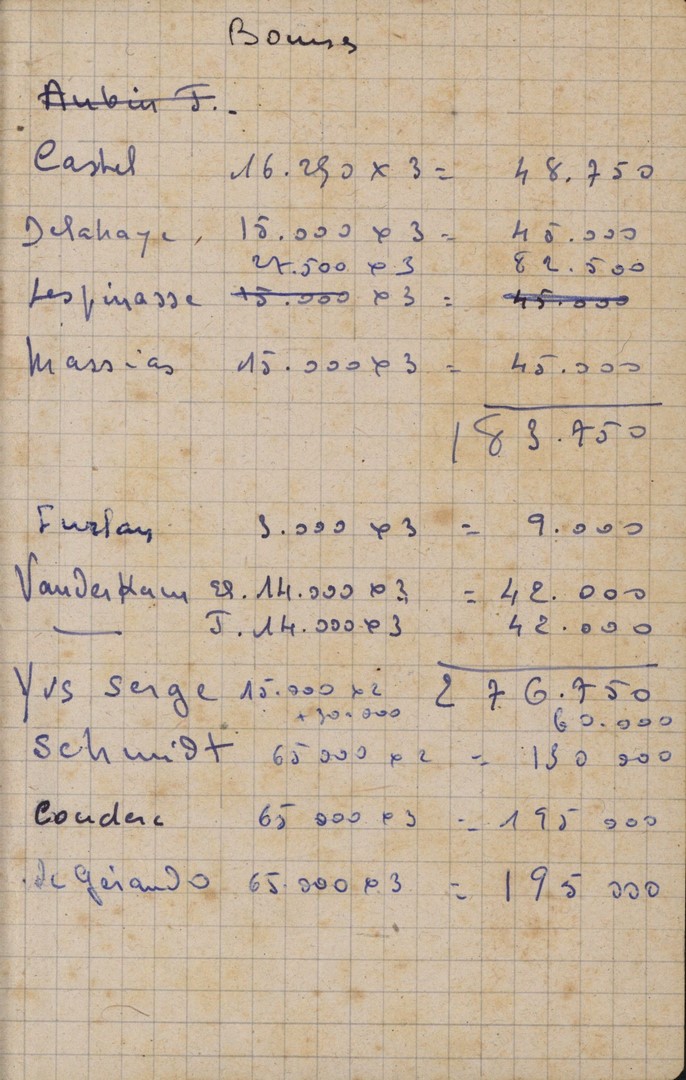 Bourses
Aubin J.
Castel 16.250 x 3 = 48.750
Delahaye, 15.000 x 3 = 45.000
27.500 x 3 82.500
Lespinasse 15.000 x 3 = 45.000
Massias 15.000 x 3 = 45.000
183.750
Furlan 3.000 x 3 = 9.000
Vanderham 14.000 x 3 = 42.000
J. 14.000 x 3 42.000
Yvs Serge 15.000 x 2 276.750
+30.000 60.000
Schmidt 65000 x 2 = 130 000
Couderc 65 000 x 3 = 195 000
de Gérando 65.000 x 3 = 195 000